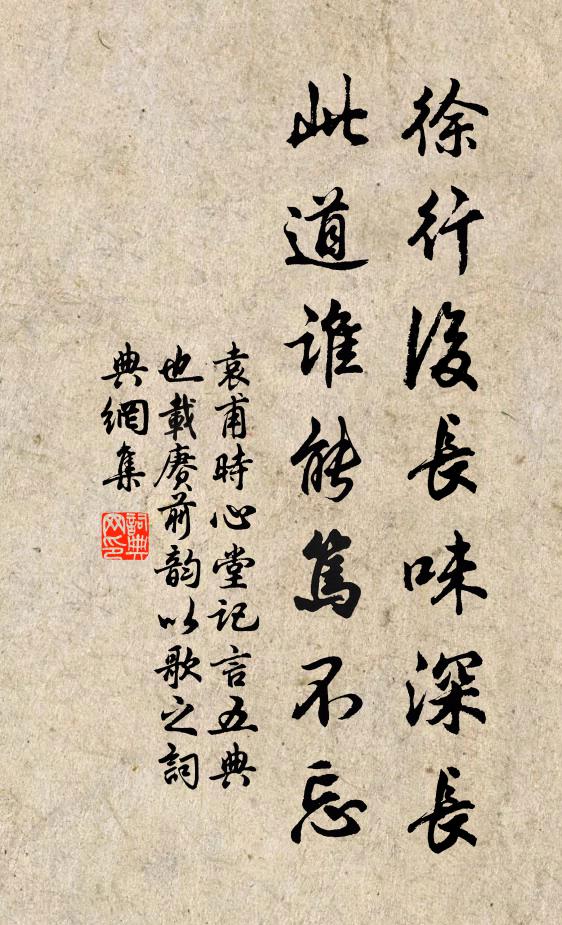 徐行後長味深長
此道誰能篤不忘
袁甫時心堂記言五典
也載賡前韵以歌之詞
典網集
詞典
网印